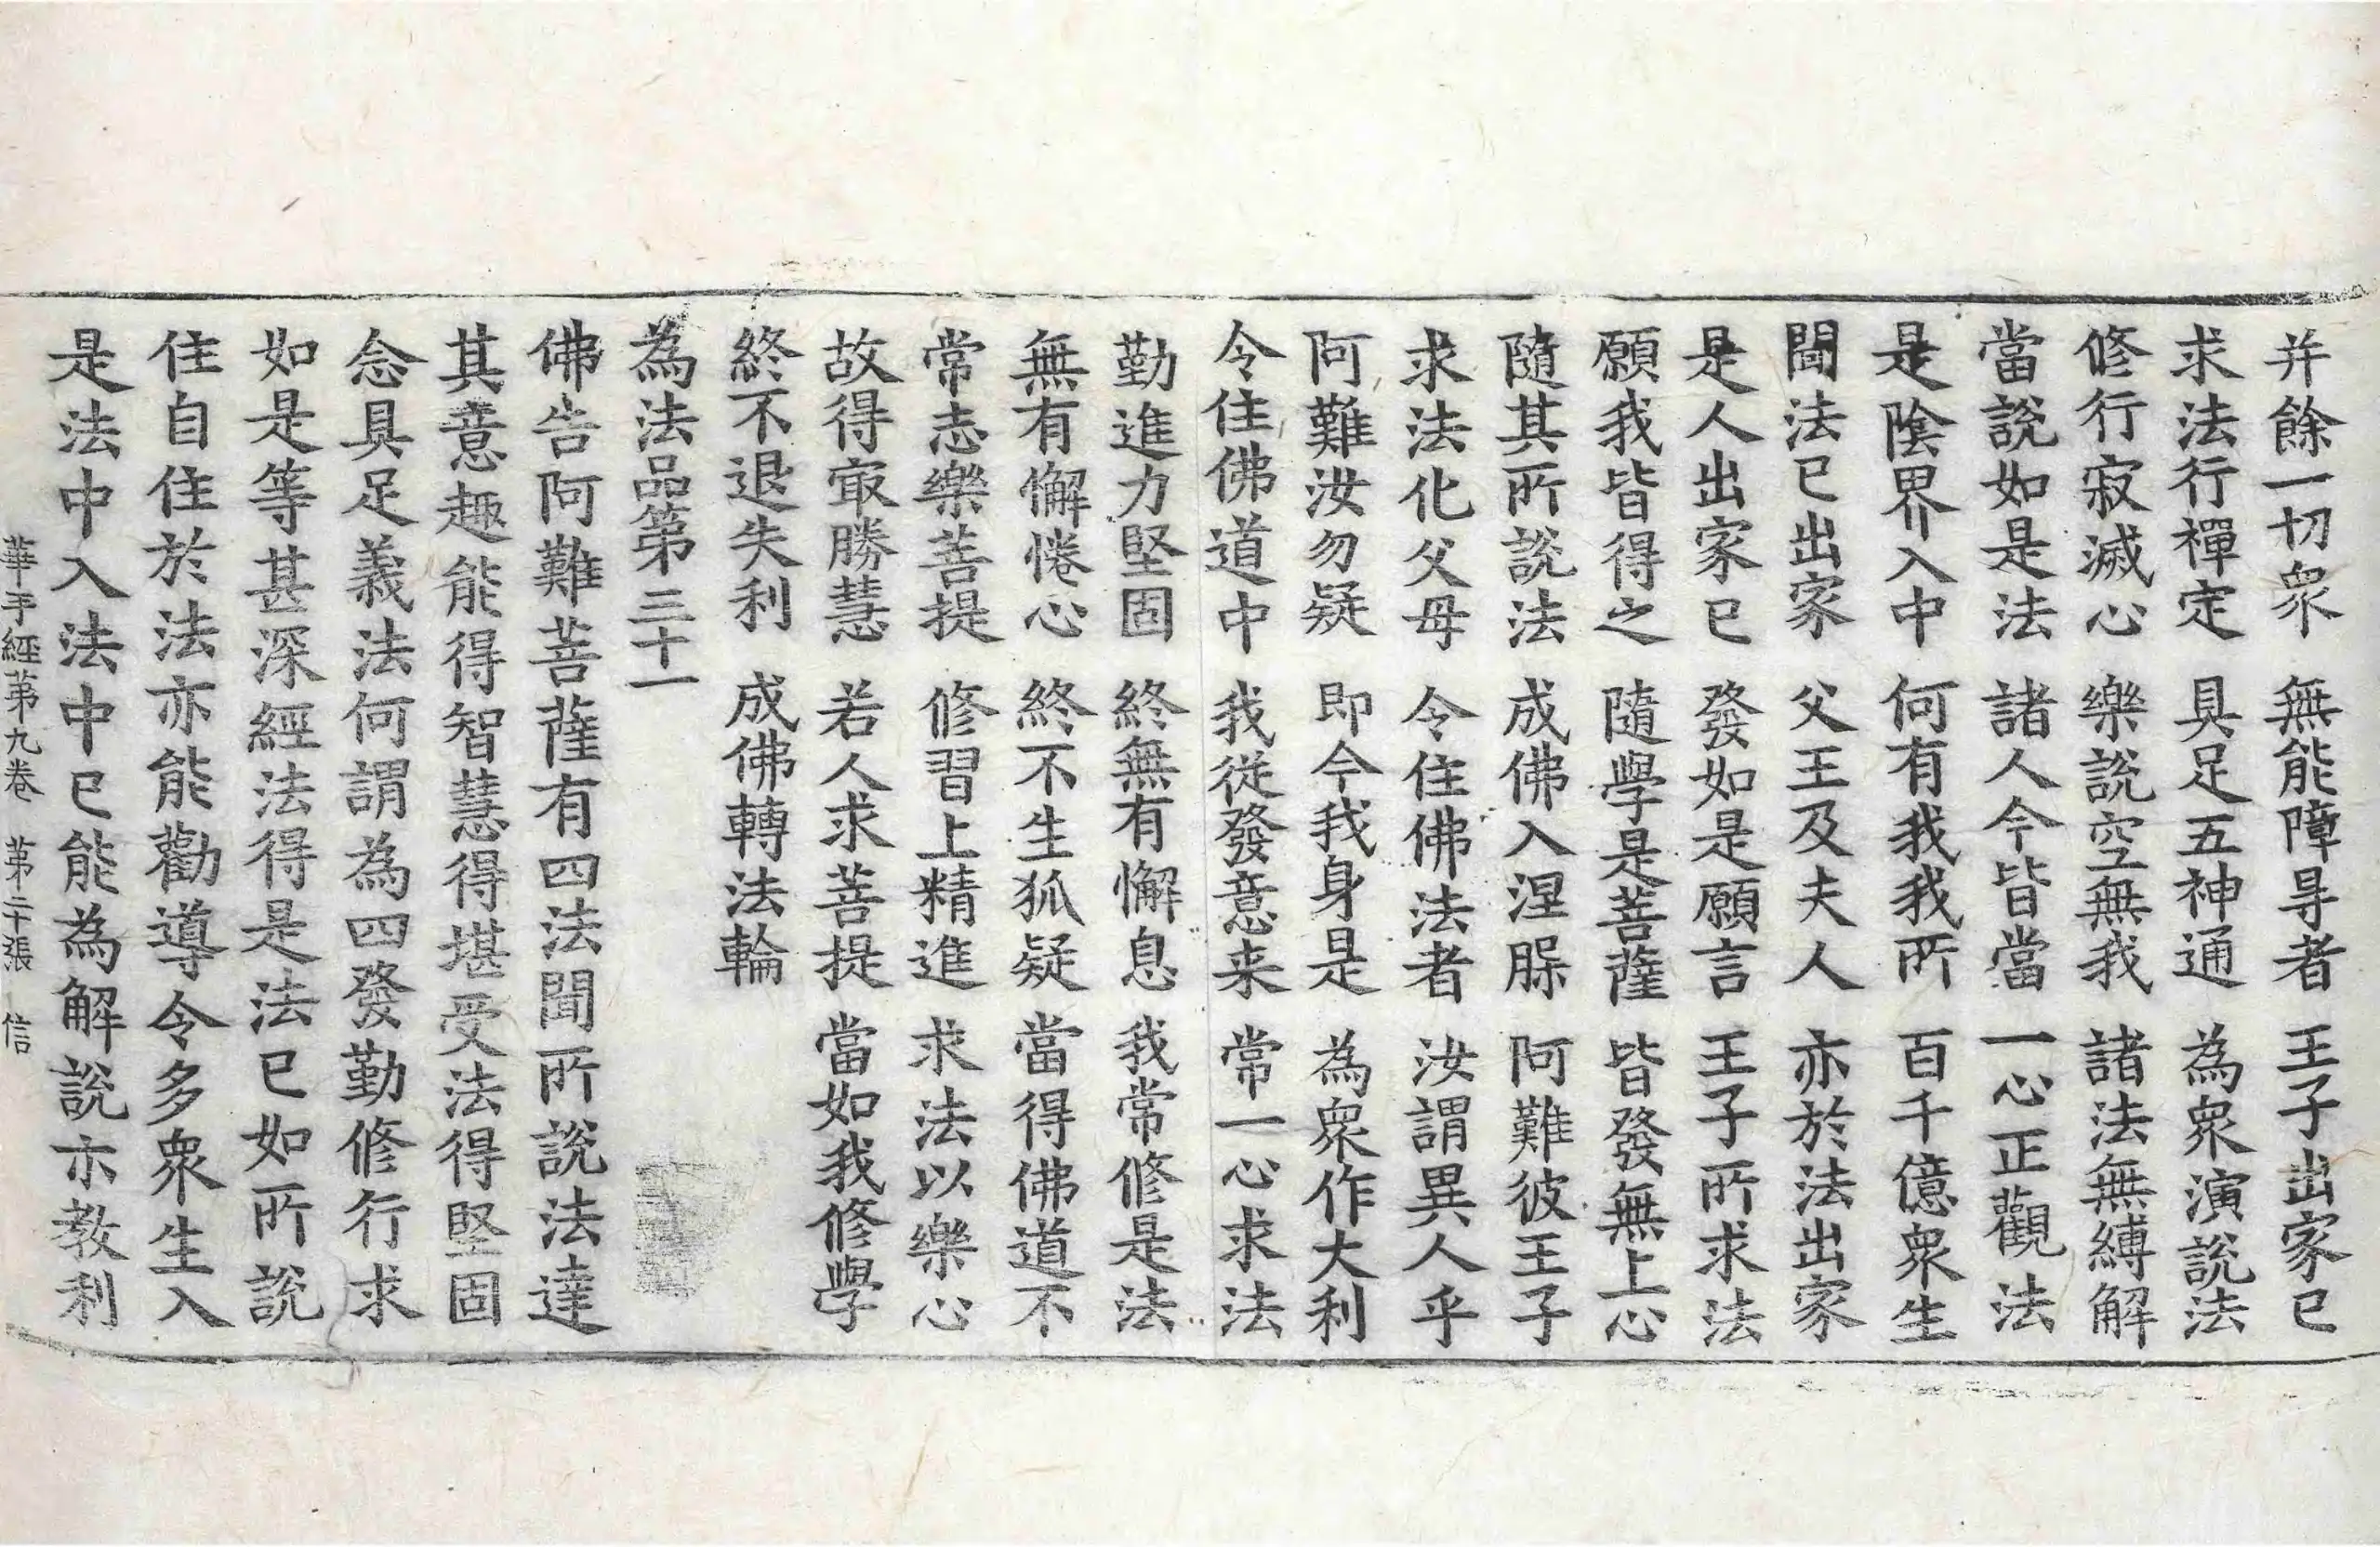 并餘一切衆 無能障㝵者 王子出家已
求法行禪定 具足五神通 為衆演說法
修行寂滅心 樂說空無我 諸法無縛解
當說如是法 諸人今皆當 一心正觀法
是陰界入中 何有我我所 百千億衆生
聞法已出家 父王及夫人 亦於法出家
是人出家已 發如是願言 王子所求法
願我皆得之 隨學是菩薩 皆發無上心
隨其所說法 成佛入涅腺 阿難彼王子
求法化父母 令住佛法者 汝謂異人乎
阿難汝勿疑 即今我身是 為衆作大利
令住佛道中 我從發意来 常一心求法
勤進力堅固 終無有懈息 我常修是法
無有懈惓心 終不生狐疑 當得佛道不
常志樂菩提 修習上精進 求法以樂心
故得㝡勝慧 若人求菩提 當如我修學
終不退失利 成佛轉法輪
為法品第三十一
佛告阿難菩薩有四法聞所說法達
其意趣能得智慧得堪受法得堅固
念具足義法何謂為四發勤修行求
如是等甚深經法得是法已如所說
住自住於法亦能勸導令多衆生入
是法中入法中已能為解說亦教利
華手經第九卷 第二十張 信